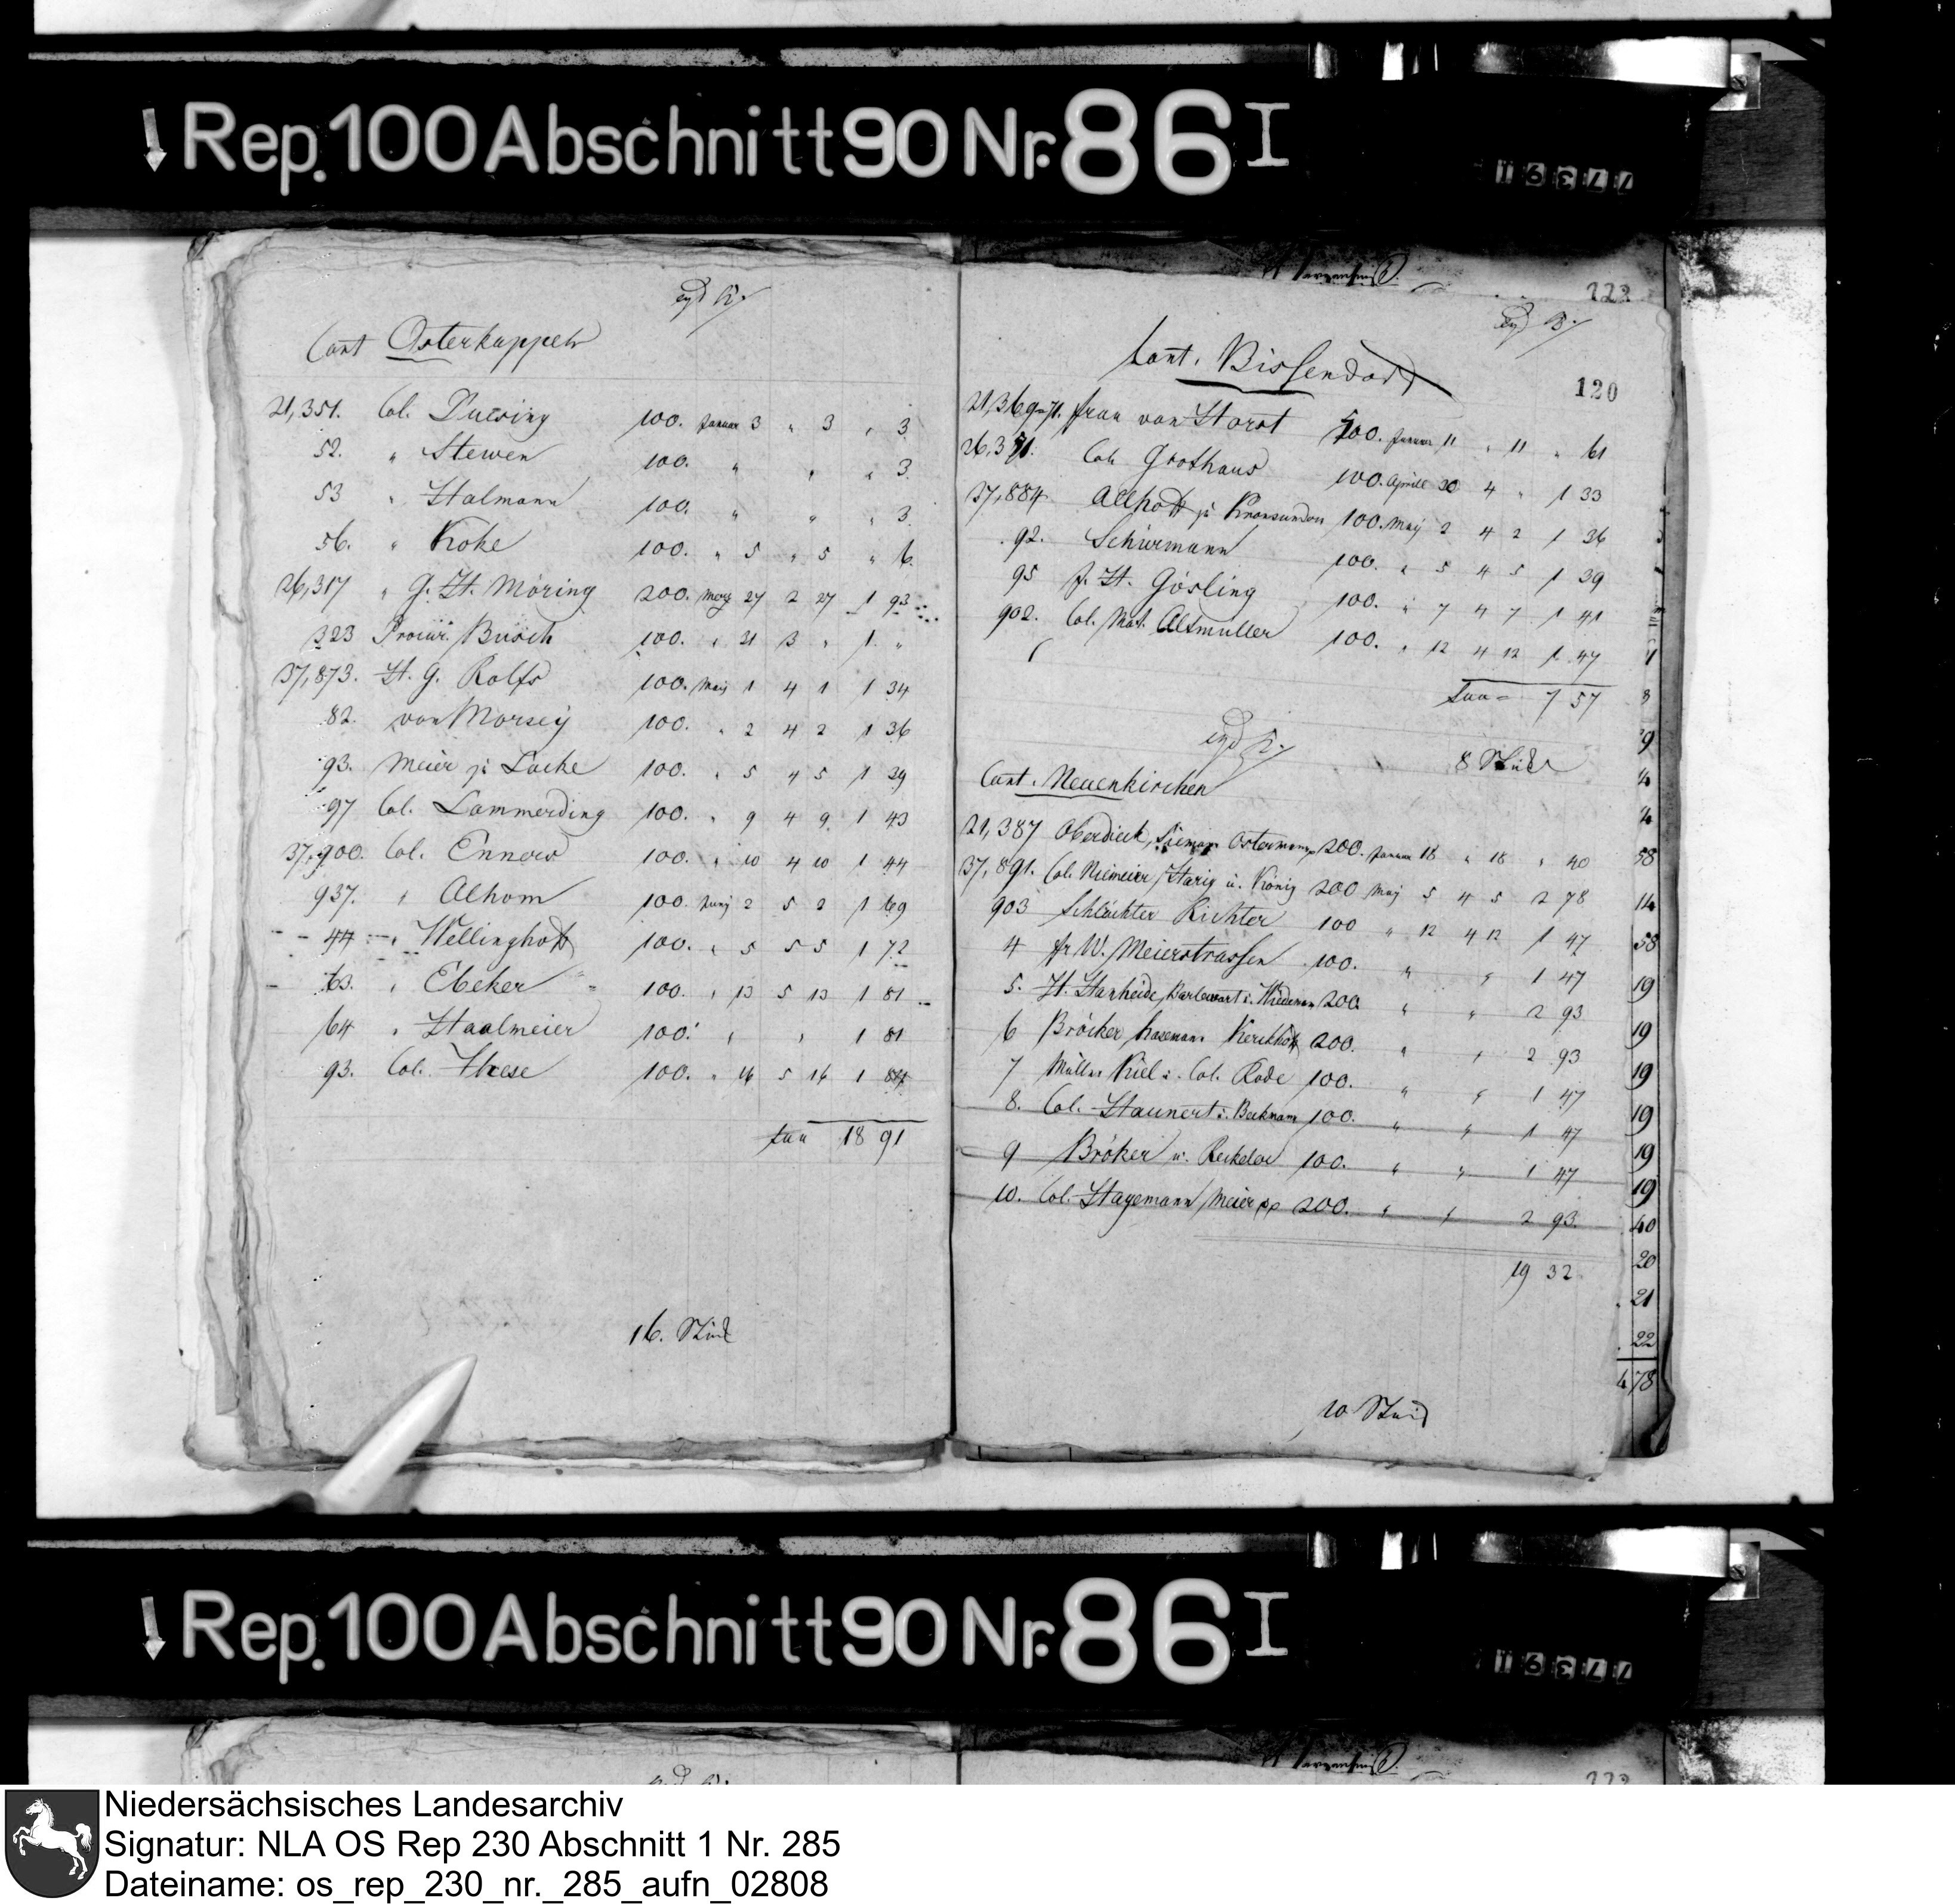 Rep. 100 Abschnitt 90 Nr. 86 I
77391
Cant Osterkappeln
21,351. Col. Duvsing 100. Januar 3 " 3 " 3
52. " Stewen 100. " " " 3
53 " Halmann 100. " " " 3
56. " Koke 100. " 5 " 5 " 6
26,317 " G. H. Möring 200. Merz 27 2 27 1 93
323 Procur. Busch 100. " 21 3 " 1 "
37,873. H. G. Rolfs 100. Maij 1 4 1 1 34
82. von Morsey 100. " 2 4 2 1 36
93. Meier zu Locke 100. " 5 4 5 1 39
97 Col. Lammerding 100. " 9 4 9 1 43
37,900. Col. Enners 100. " 10 4 10 1 44
937. " Alhorn 100. Junij 2 5 2 1 69
44 " Wellinghoff 100. " 5 5 5 1 72
63. " Ebeker 100. " 13 5 13 1 81
64 " Haalmeier 100. " " 1 81
93. Col. These 100. " 16 5 16 1 84
18 91
16. Stück
223
Cant. Bissendorf
120
21,369-71. Frau von Horst 500. Januar 11 " 11 " 61
26,371. Col. Grothaus 100. Aprill 30 4 " 1 33
37,884 Allhoff zu Kronsundern 100. Maij 2 4 2 1 36
92. Schürmann 100. " 5 4 5 1 39
95 J. H. Gösling 100. " 7 4 7 1 41
902. Col. Mat. Altmüller 100. " 12 4 12 1 47
7 57
8 Stück
Cant. Neuenkirchen
21,387 Oberdieck, Siemann Ostermann 200. Januar 18 " 18 " 40
37,891. Col. Niemeier, Harig u. König 200 Maij 5 4 5 2 78
903 Schlächter Richter 100 " 12 4 12 1 47
4 fr W. Meierstrassen 100. " " 1 47
5. H. Stanheide, 200 " " 2 93
6 Bröcker Hasemann Kerckhoff 200. " " 2 93
7 Müller Kiel u. Col. Rode 100. " " 1 47
8. Col. Staunert u. Beckmann 100. " " 1 47
9 Bröker u. 100. " " 1 47
10. Col. Hagemann, Meier pp 200. " " 2 93
19 32
10 Stück
9
58
14
58
19
19
19
19
19
19
40
20
21
22
478
Rep. 100 Abschnitt 90 Nr. 86 I
77391
Niedersächsisches Landesarchiv
Signatur: NLA OS Rep 230 Abschnitt 1 Nr. 285
Dateiname: os_rep_230_nr._285_aufn_02808